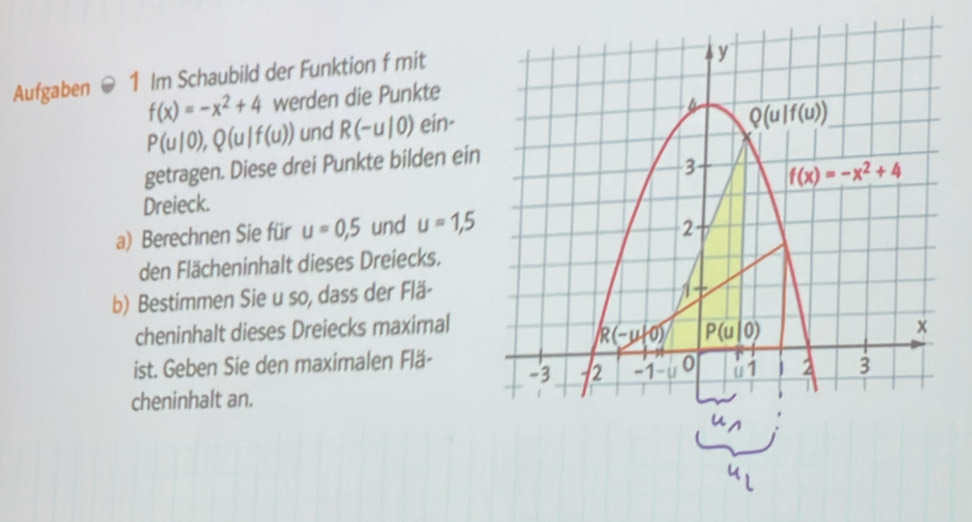 Aufgaben 1 Im Schaubild der Funktion f mit
f(x) = -x² + 4 werden die Punkte
P(u|0), Q(u|f(u)) und R(-u|0) ein-
getragen. Diese drei Punkte bilden ein
Dreieck.
a) Berechnen Sie für u = 0,5 und u = 1,5
den Flächeninhalt dieses Dreiecks.
b) Bestimmen Sie u so, dass der Flä-
cheninhalt dieses Dreiecks maximal
ist. Geben Sie den maximalen Flä-
cheninhalt an.
y
4
Q(u|f(u))
3
f(x) = -x² + 4
2
1
R(-u|0) P(u|0) x
-3 -2 -1 -u 0 u 1 2 3
u₁
u₂